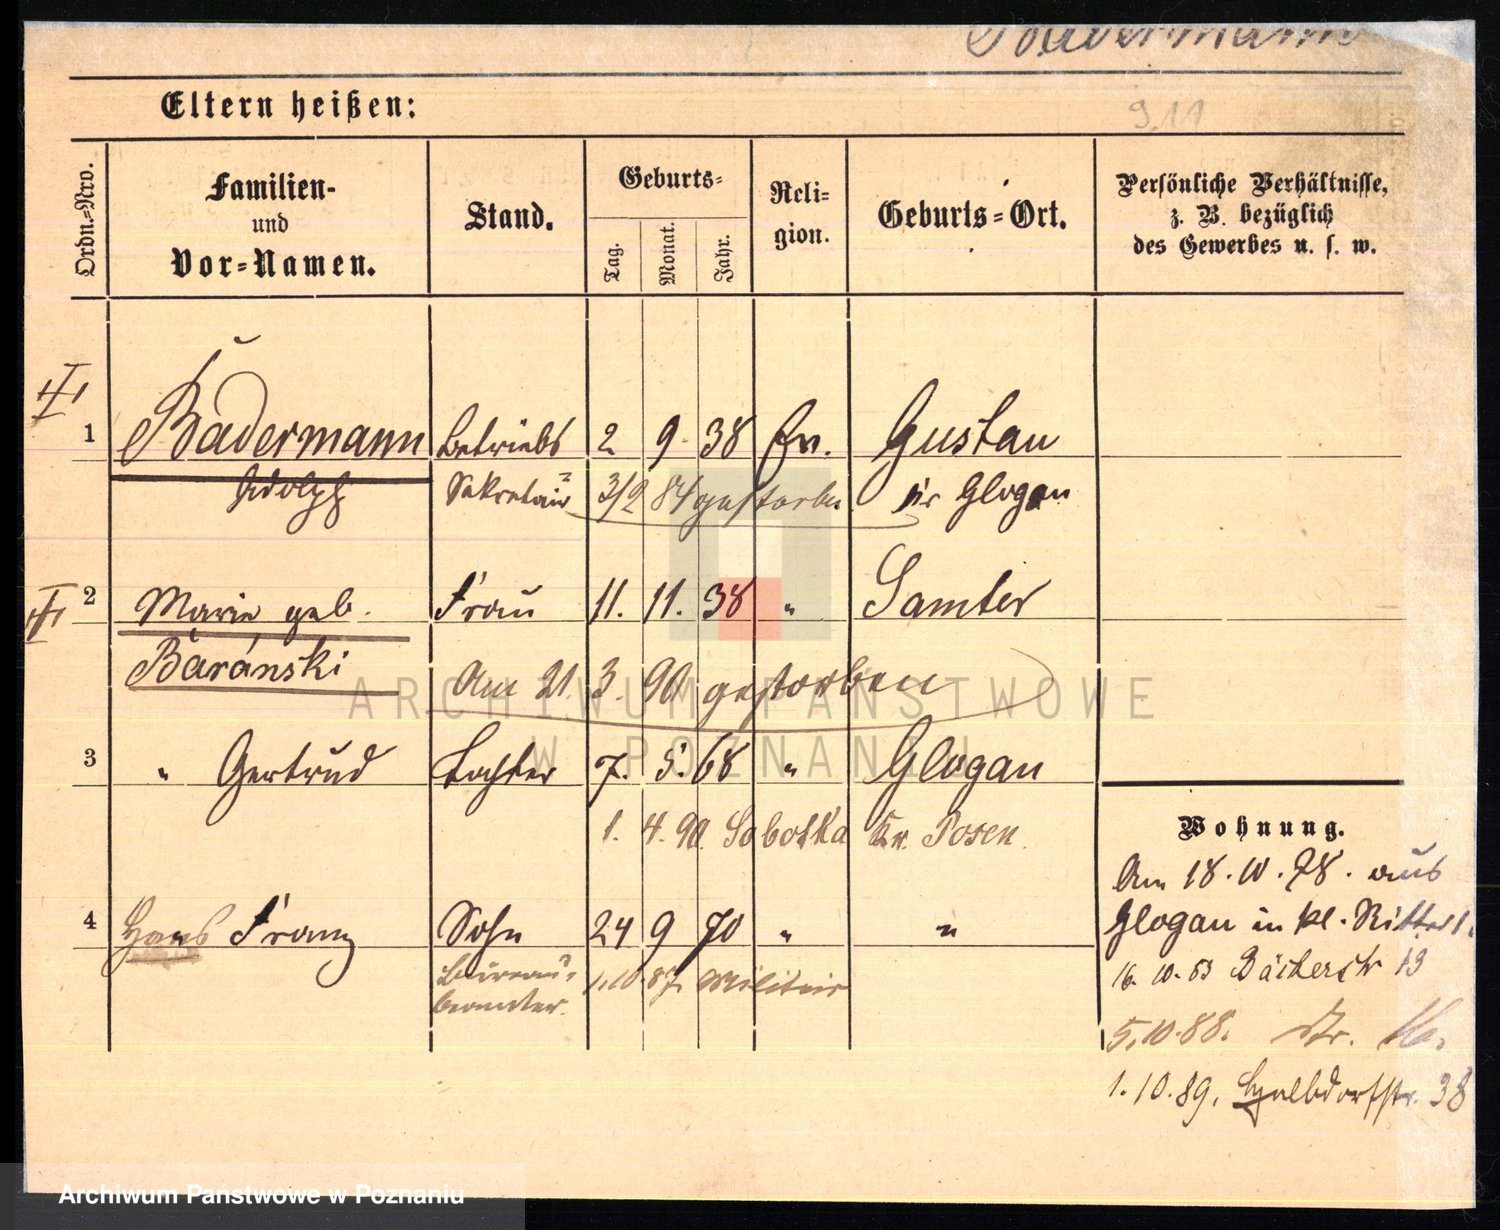 Badermann
9,11
Eltern heißen:
Ordn.-Nro.
Familien-
und
Vor-Namen.
Stand.
Geburts-
Tag.
Monat.
Jahr.
Reli-
gion.
Geburts-Ort.
Persönliche Verhältnisse,
z. B. bezüglich
des Gewerbes u. s. w.
1 Badermann Betriebs 2 9 38 Ev. Gustau
Adolph Sekretair 3/2 84 gestorben Kr Glogau
2 Marie geb. Frau 11. 11. 38 " Samter
Baránski Am 21. 3. 90 gestorben
3 " Gertrud Tochter 7. 5. 68 " Glogau
1. 4. 90. Sobotka Kr. Posen.
4 Hans Franz Sohn 24 9 70 " "
Bureau-
beamter. 1.10.87. Militair
Wohnung.
Am 18.10.78. aus
Glogau in kl. Ritterst.
16.10.83 Bäckerstr 13
5.10.88. Str. 16.
1.10.89. Halbdorfstr. 38
ARCHIWUM PAŃSTWOWE
W POZNANIU
Archiwum Państwowe w Poznaniu